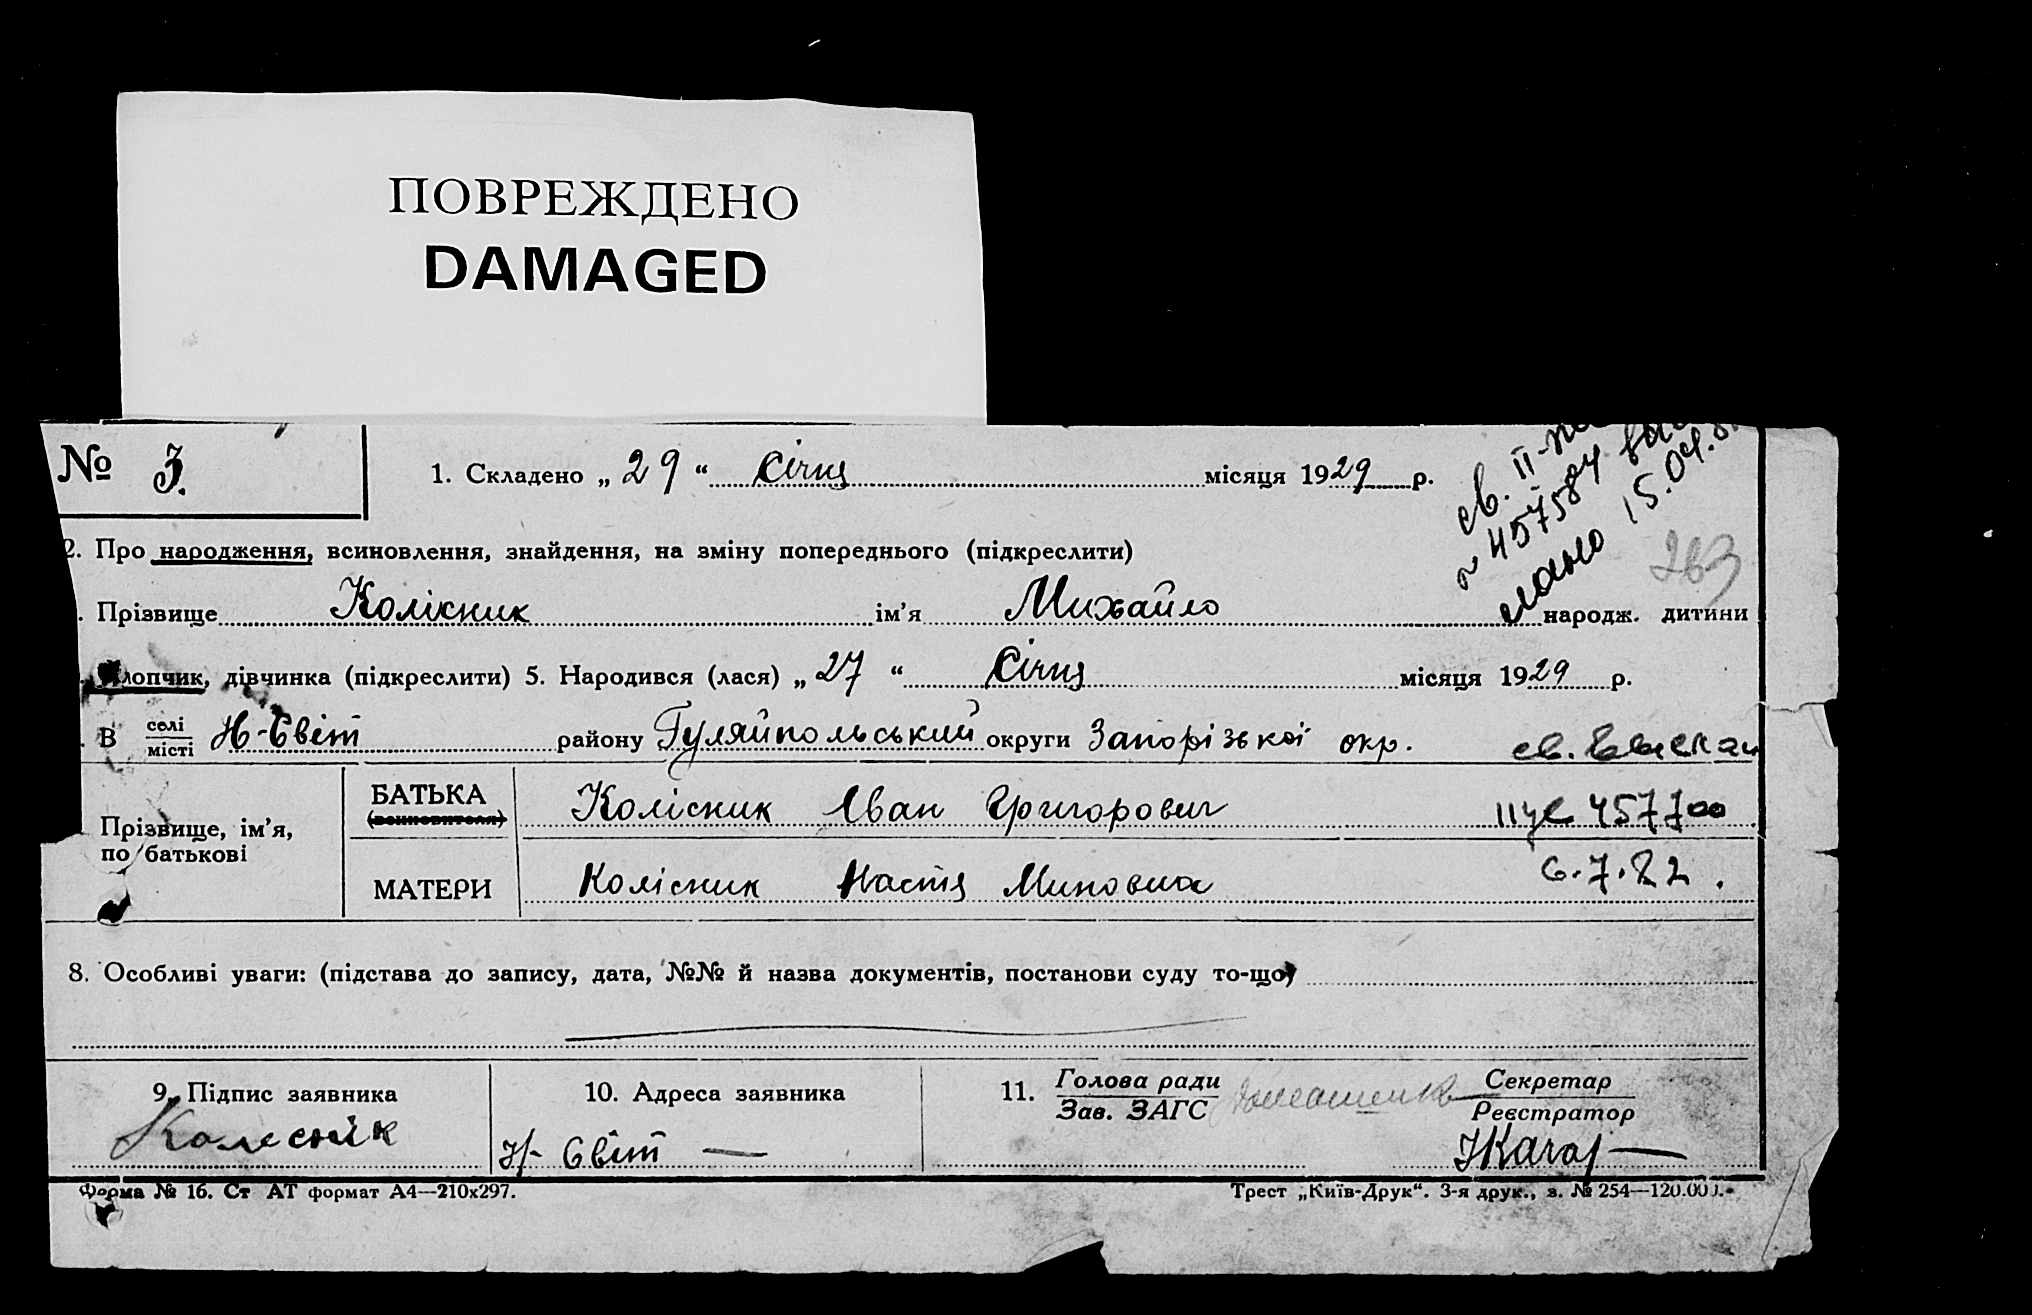 ПОВРЕЖДЕНО
DAMAGED
№ 3.
1. Складено „ 29 “ Січня місяця 1929 р.
св. II-
457584
15.04.
263
2. Про народження, всиновлення, знайдення, на зміну попереднього (підкреслити)
. Прізвище Колісник ім’я Михайло народж. дитини
лопчик, дівчинка (підкреслити) 5. Народився (лася) „ 27 “ Січня місяця 1929 р.
. В селі
місті Н-Світ району Гуляйпольський округи Запорізької окр.
св.
Прізвище, ім’я, по батькові
БАТЬКА Колісник Іван Григорович
457700
МАТЕРИ Колісник Настя Миновна
6.7.82.
8. Особливі уваги: (підстава до запису, дата, №№ й назва документів, постанови суду то-що)
9. Підпис заявника
Колеснік
10. Адреса заявника
Н- Світ —
11. Голова ради
Зав. ЗАГС
Секретар
Реєстратор
Форма № 16. Ст АТ формат А4—210х297.
Трест „Київ-Друк“. 3-я друк., з. № 254—120.000.